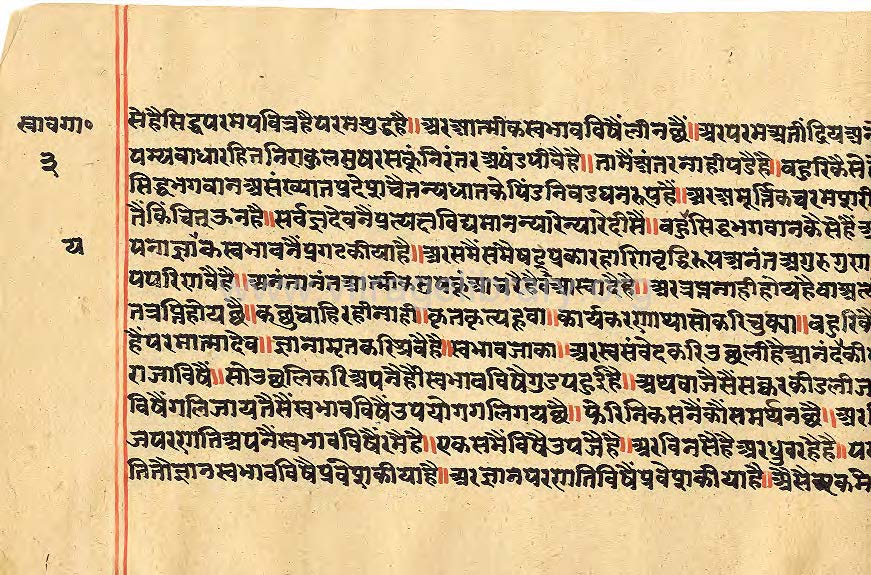 सेहैसिद्धपरमपवित्रहैपरमशुद्धहै॥अरआत्मीकस्वभावविषैंलीनछैं॥अरपरमअतींद्रियअ
श्रावगा०
पम्यबाधारहितनिराकुलसुषरसकूंनिरंतरअषंडपीवैहै॥तामैंअंतरनाहीपडैहै॥बहुरिकैसे
३
सिद्धभगवानअसंख्यातप्रदेशचैतन्यधातकेपिंडनिवडघनरूपहैं॥अरअमूर्तिकचरमशरी
तैंकिंचितऊनहै॥सर्वज्ञदेवनैंप्रत्यक्षविद्यमानन्यारेन्यारेदीसैं॥बहुरिसिद्धभगवानकैसेहैं
य
पनाज्ञांकस्वभावनैंप्रगटकीयाहै॥अरसमैंसंमैषट्प्रकारहाणिवृद्धिरूपअनंतअगुरुगु
परिणवैहैं॥अनंतानंतआत्मीक
तत्रप्तिहोयछै॥कछुचाहिरहीनाही॥कृतकृत्यहूवा॥कार्यकरणाथासोकरिचुक्या॥बहुरिकै
हैंपरमात्मादेव॥ज्ञानामृतकरिश्रवैहै॥स्वभावजाका॥अरस्वसंवेदकरिउछलीहैआनंदकी
राजाविषैं॥सोउछलिकरिअपनैहीस्वभावविषैगुडपहूईहै॥अथवाजैसैंसक्करकीडलीज
विषैंगलिजायतैसैंस्वभावविषैंउपयोगगलिगयछै॥फेरिनिकसनैंकौंसमर्थनछै॥अर
जपरणतिअपनैंस्वभावविषैंरमैहै॥एकसमैंविषैंउपजैहै॥अरविनसैहैअरध्रुवरहैहै॥
तितौज्ञानस्वभावविषैप्रवेशकीयाहै॥अरज्ञानपरणतिविषैंप्रवेशकीयाहै॥